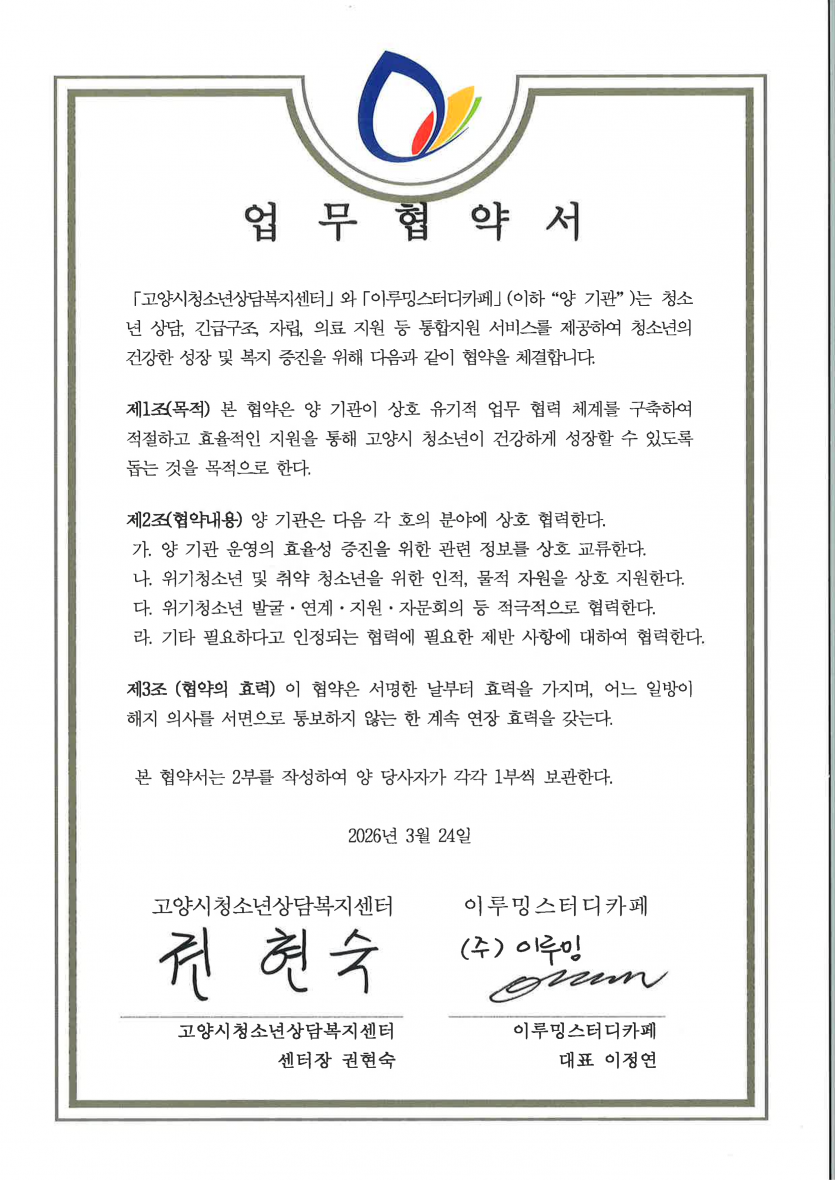 업 무 협 약 서
「고양시청소년상담복지센터」와 「이루밍스터디카페」(이하 “양 기관”)는 청소
년 상담, 긴급구조, 자립, 의료 지원 등 통합지원 서비스를 제공하여 청소년의
건강한 성장 및 복지 증진을 위해 다음과 같이 협약을 체결합니다.
제1조(목적) 본 협약은 양 기관이 상호 유기적 업무 협력 체계를 구축하여
적절하고 효율적인 지원을 통해 고양시 청소년이 건강하게 성장할 수 있도록
돕는 것을 목적으로 한다.
제2조(협약내용) 양 기관은 다음 각 호의 분야에 상호 협력한다.
가. 양 기관 운영의 효율성 증진을 위한 관련 정보를 상호 교류한다.
나. 위기청소년 및 취약 청소년을 위한 인적, 물적 자원을 상호 지원한다.
다. 위기청소년 발굴・연계・지원・자문회의 등 적극적으로 협력한다.
라. 기타 필요하다고 인정되는 협력에 필요한 제반 사항에 대하여 협력한다.
제3조 (협약의 효력) 이 협약은 서명한 날부터 효력을 가지며, 어느 일방이
해지 의사를 서면으로 통보하지 않는 한 계속 연장 효력을 갖는다.
본 협약서는 2부를 작성하여 양 당사자가 각각 1부씩 보관한다.
2026년 3월 24일
고양시청소년상담복지센터
권 현 숙
고양시청소년상담복지센터
센터장 권현숙
이루밍스터디카페
(주) 이루밍
이루밍스터디카페
대표 이정연